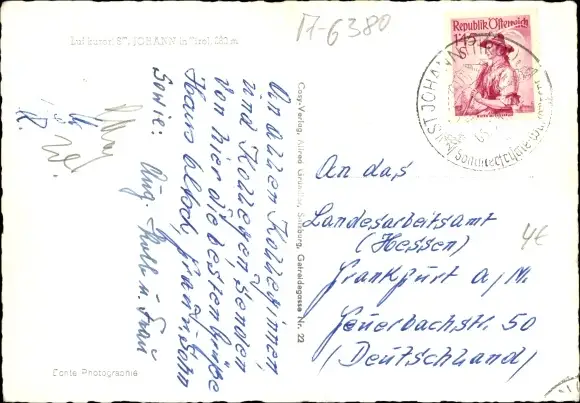 Luftkurort ST. JOHANN in Tirol, 663 m
17-6380
Republik Österreich
1'45
S
ST JOHANN
An allen Kolleginnen
und Kollegen, senden
von hier die besten Grüße
Hans Altod, Frau u. Sohn
Sowie: Aug. Kolb u. Frau
Cosy-Verlag, Alfred Gründler, Salzburg, Getreidegasse Nr. 22
An das
Landesarbeitsamt
(Hessen)
Frankfurt a/M.
Feuerbachstr. 50
(Deutschland)
4€
Echte Photographie